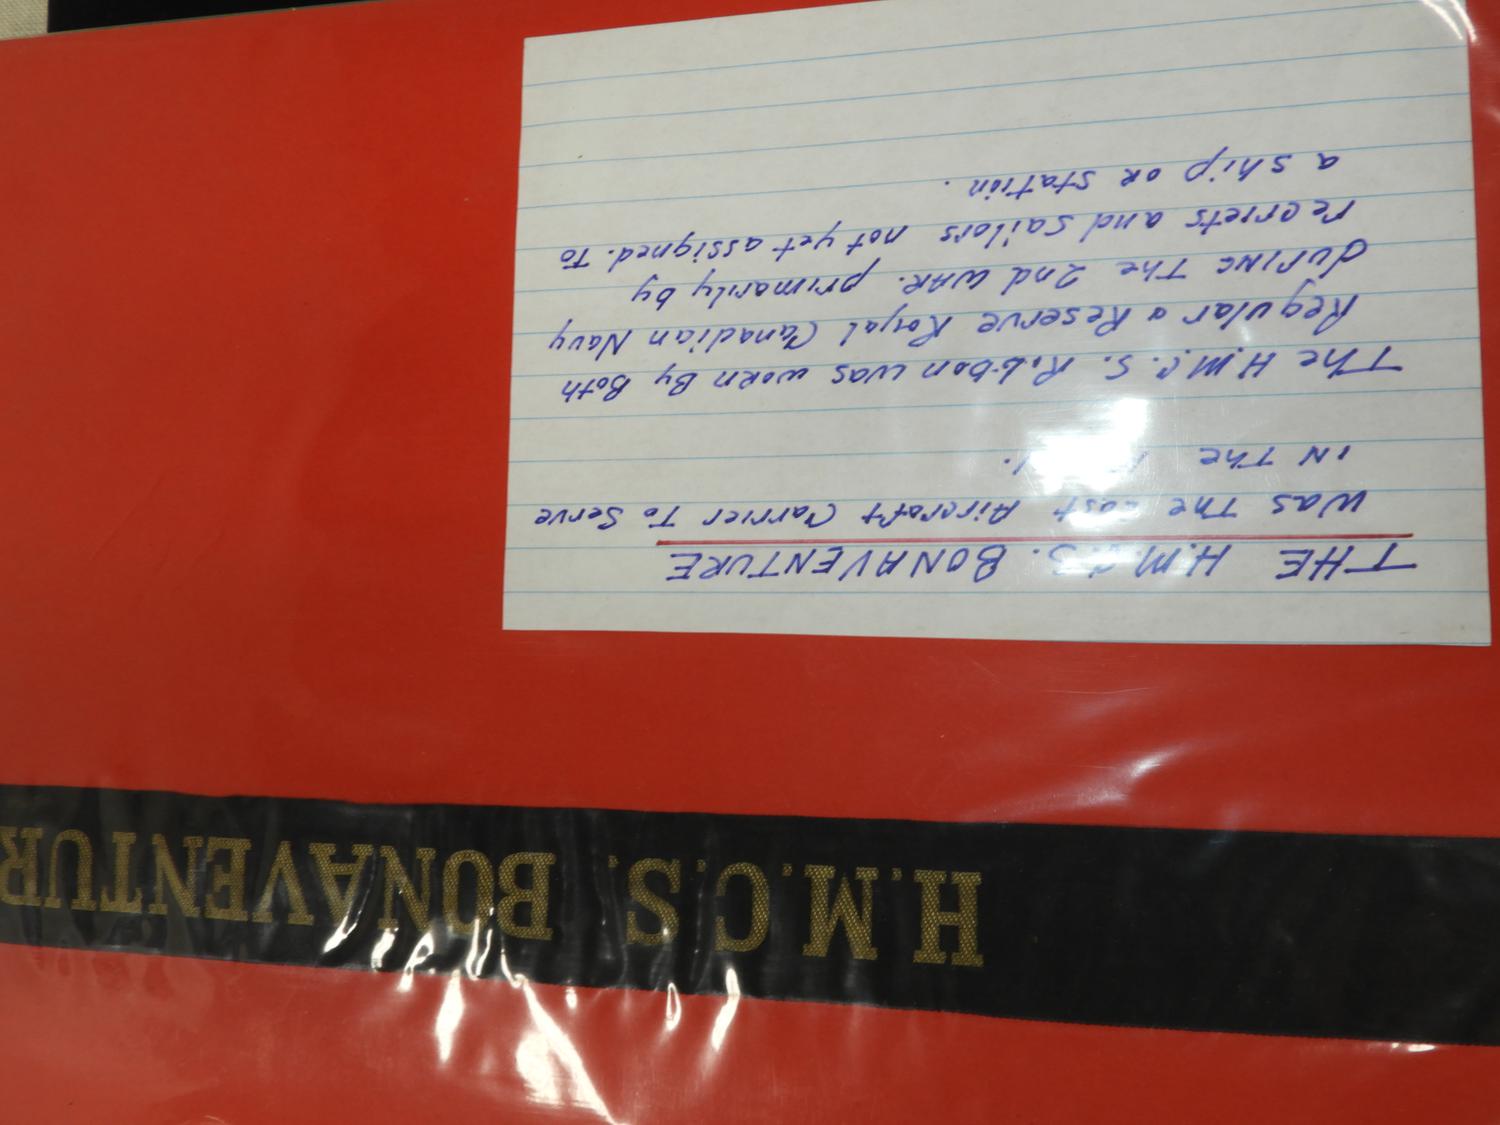 H.M.C.S. BONAVENTUR
THE H.M.C.S. BONAVENTURE
was The Last Aircraft Carrier To Serve
IN The
The H.M.C.S. Ribbon was worn By Both
Regular & Reserve Royal Canadian Navy
during The 2nd WAR. primarily by
recriets and sailors not yet assigned. To
a ship or station.